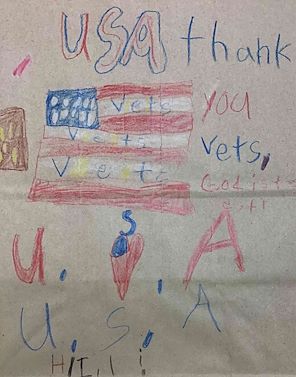 USA thank
vets you
vets vets,
vets
U. S. A
U. S. A
HI, I !